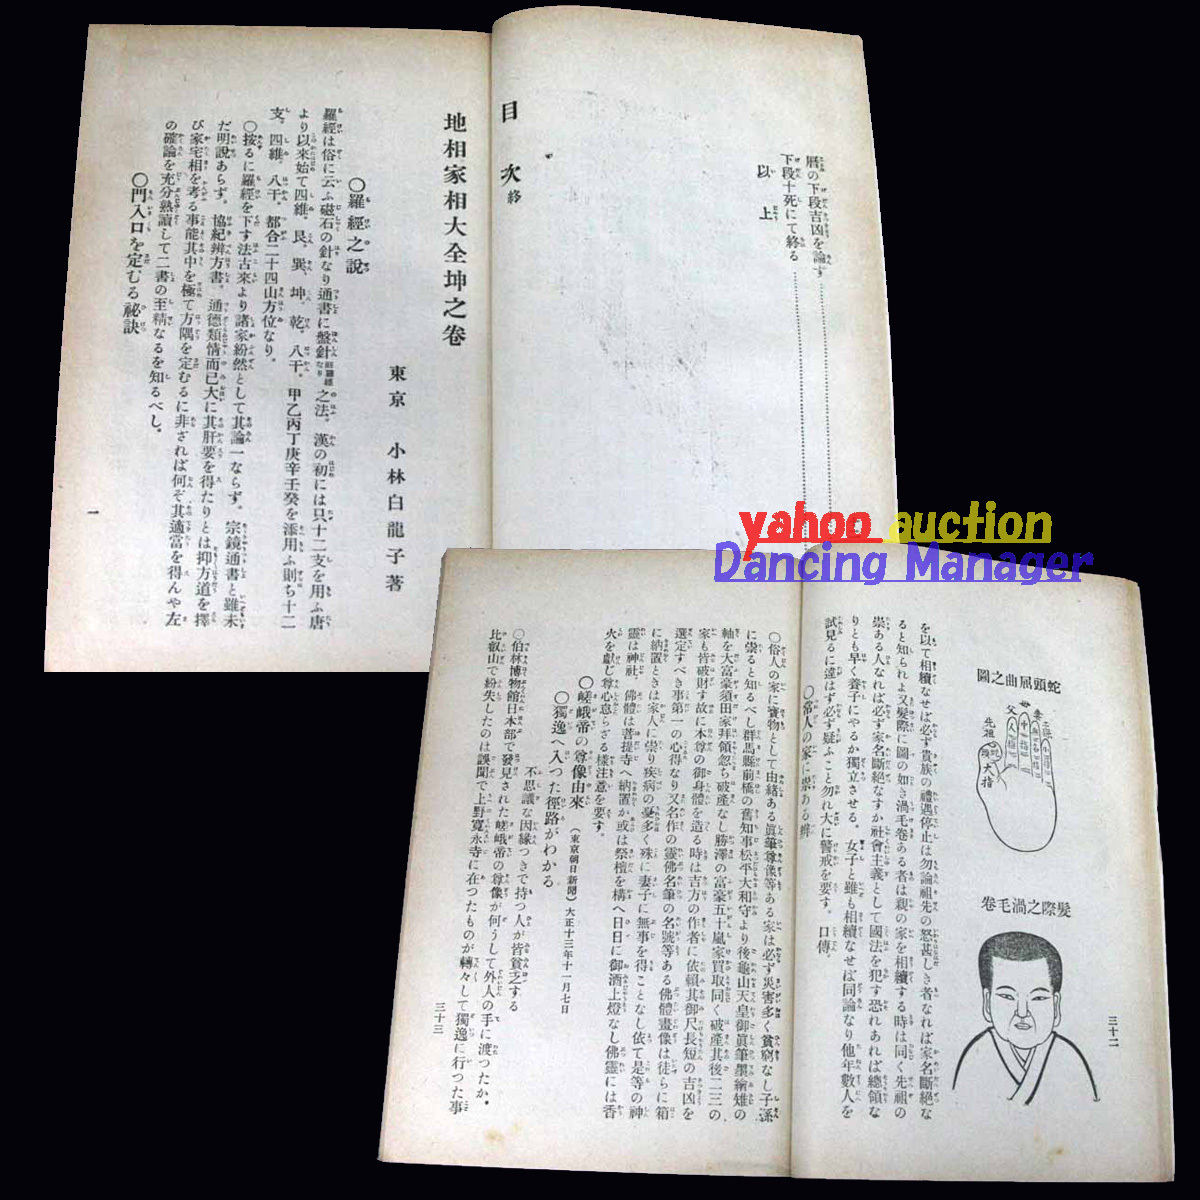 曆の下段吉凶を論す
下段十死にて終る
以上
目次 終
地相家相大全坤之卷
東京 小林白龍子著
〇羅經之說
羅經は俗に云ふ磁石の針なり通書に盤針之法。漢の初には只十二支を用ふ唐
より以來始て四維。艮、巽、坤。乾。八干。甲乙丙丁庚辛壬癸を添用ふ則ち十二
支。四維。八干。都合二十四山方位なり。
〇按るに羅經を下す法古來より諸家紛然として其論一ならず。宗鏡通書と雖未
だ明說あらず。協紀辨方書。通德類情而已大に其肝要を得たりとは抑方道を擇
び家宅相を考る事能其中を極て方隅を定むるに非ざれば何ぞ其適當を得んや左
の確論を充分熟讀して二書の至精なるを知るべし。
〇門入口を定むる祕訣
一
yahoo auction
Dancing Manager
蛇頭屈曲之圖
父
母
妻
先祖
人指
大指
髮際之渦毛卷
三十二
を以て相續なせば必ず貴族の禮遇停止は勿論祖先の怒甚しき者なれば家名斷絕な
ると知られよ又髮際に圖の如き渦毛卷ある者は親の家を相續する時は同く先祖の
祟ある人なれば必ず家名斷絕なすか社會主義として國法を犯す恐れあれば總領な
りとも早く養子にやるか獨立させる。女子と雖も相續なせば同論なり他年數人を
試見るに違はず必ず疑ふこと勿れ大に警戒を要す。口傳。
〇常人の家に祟ある辨
〇俗人の家に寶物として由緖ある眞筆尊像等ある家は必ず災害多く貧窮なし子孫
に祟ると知るべし群馬縣前橋の舊知事松平大和守より後龜山天皇御眞筆墨繪雉の
軸を大富豪須田家拜領忽ち破產なし勝澤の富豪五十嵐家買取同く破產其後二三の
家も皆破財す故に本尊の御身體を造る時は吉方の作者に依賴其御尺長短の吉凶を
選定すべき事第一の心得なり又名作の靈佛名筆の名號等ある佛體畫像は徒らに箱
に納置ときは家人に祟り疾病の憂多く殊に妻子に無事を得ことなし依て是等の神
靈は神社、佛體は菩提寺へ納置か或は祭壇を構へ日日に御酒上燈なし佛靈には香
火を獻じ尊心怠らざる樣注意を要す。
〇嵯峨帝の尊像由來 （東京朝日新聞）大正十三年十一月七日
〇獨逸へ入つた徑路がわかる
不思議な因緣つきで持つ人が皆貧乏する
〇伯林博物館日本部で發見された嵯峨帝の尊像が何うして外人の手に渡つたか。
比叡山で紛失したのは誤聞で上野寬永寺に在つたものが轉々して獨逸に行つた事
三十三